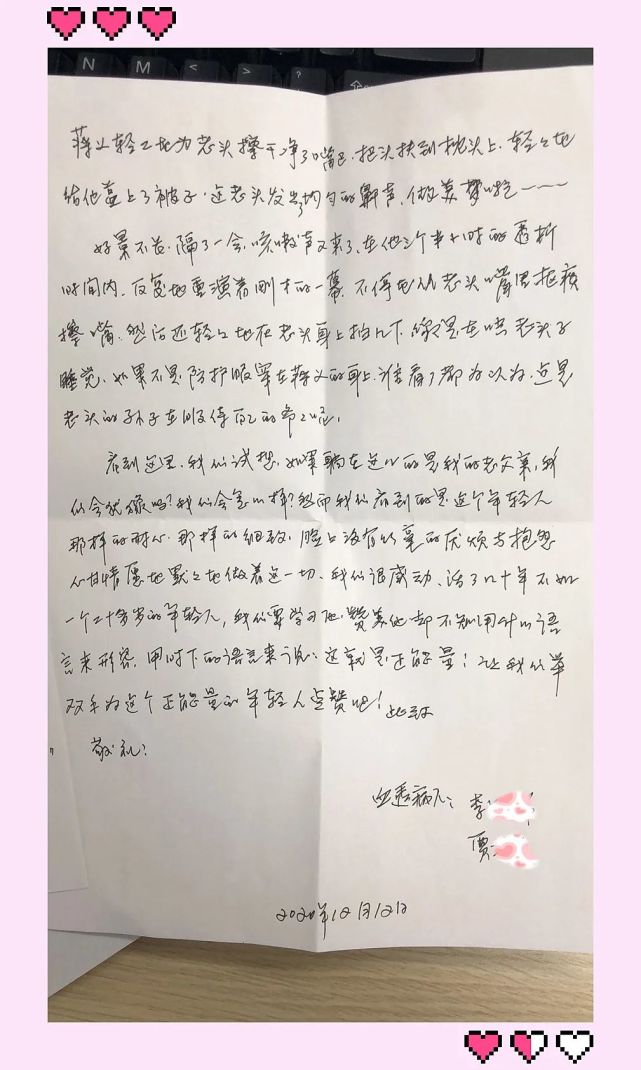 N M < > ?
蒋义轻轻地为老头擦干净了嘴巴，把头扶到枕头上，轻轻地
给他盖上了被子，这老头发出了均匀的鼾声，做美梦呢———
好景不长，隔了一会，咳嗽声又来了，在他三个半小时的透析
时间内，反复地重演着刚才的一幕，不停地从老头嘴里抠痰
擦嘴，然后还轻轻地在老头身上拍几下，像是在哄老头子
睡觉，如果不是防护服穿在蒋义的身上，谁看了都为以为，这是
老头的孙子在服侍自己的爷爷呢。
看到这里，我们试想，如果躺在这儿的是我的老父亲，我
们会抱怨吗？我们会怎么样？然而我们看到的是这个年轻人
那样的耐心，那样的细致，脸上没有丝毫的厌烦与抱怨
心甘情愿地默默地做着这一切，我们很感动，活了几十年不如
一个二十多岁的年轻人，我们要学习他，赞美他却不知用什么语
言来形容，用时下的语言来说：这就是正能量！让我们举
双手为这个正能量的年轻人点赞吧！此致
敬礼！
血透病人：李
贾
2020年12月12日